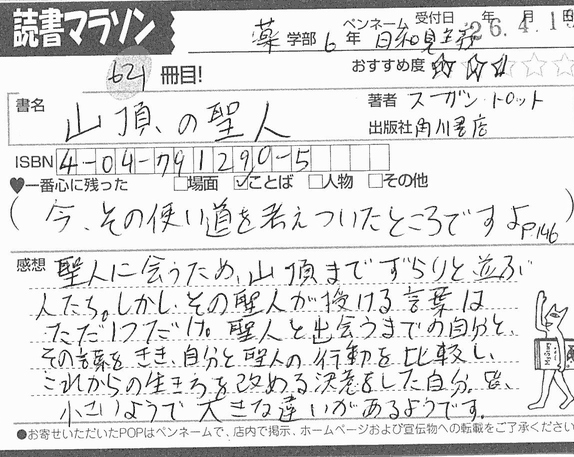 読書マラソン
薬 学部 6 年 ペンネーム 日和見主義 受付日 年 月 日
26.4.1
621 冊目! おすすめ度 ☆☆☆☆☆
書名 山頂の聖人
著者 スーザン・トロット
出版社 角川書店
ISBN 4-04-791290-5
♥一番心に残った □場面 ☑ことば □人物 □その他
(今、その使い道を考えついたところですよP.146)
感想 聖人に会うため、山頂までずらりと並ぶ
人たち。しかし、その聖人が授ける言葉は
ただ1つだけ。聖人と出会うまでの自分と、
その言葉をきき、自分と聖人の行動を比較し、
これからの生き方を改める決意をした自分。
小さいようで大きな違いがあるようです。
●お寄せいただいたPOPはペンネームで、店内で掲示、ホームページおよび宣伝物への転載をご了承ください